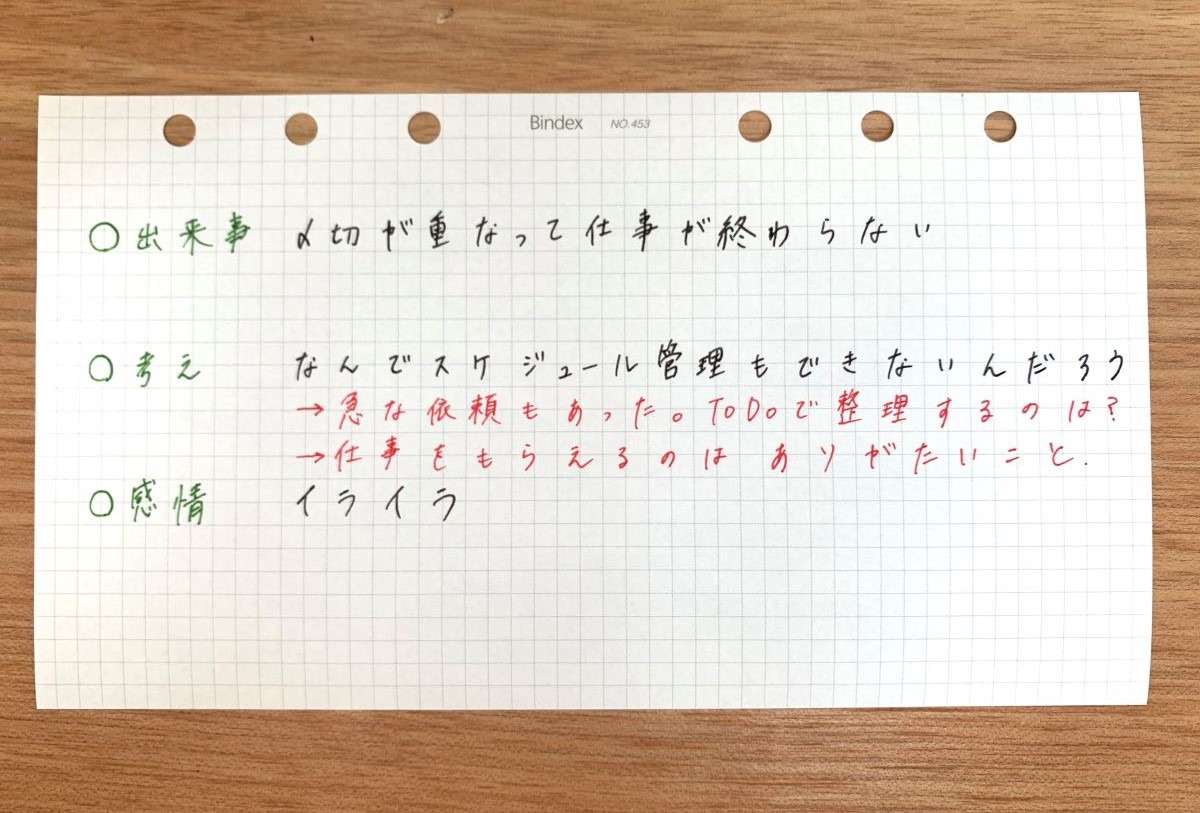 Bindex NO.453
○出来事 〆切が重なって仕事が終わらない
○考え なんでスケジュール管理もできないんだろう
→急な依頼もあった。ToDoで整理するのは?
→仕事をもらえるのはありがたいこと.
○感情 イライラ